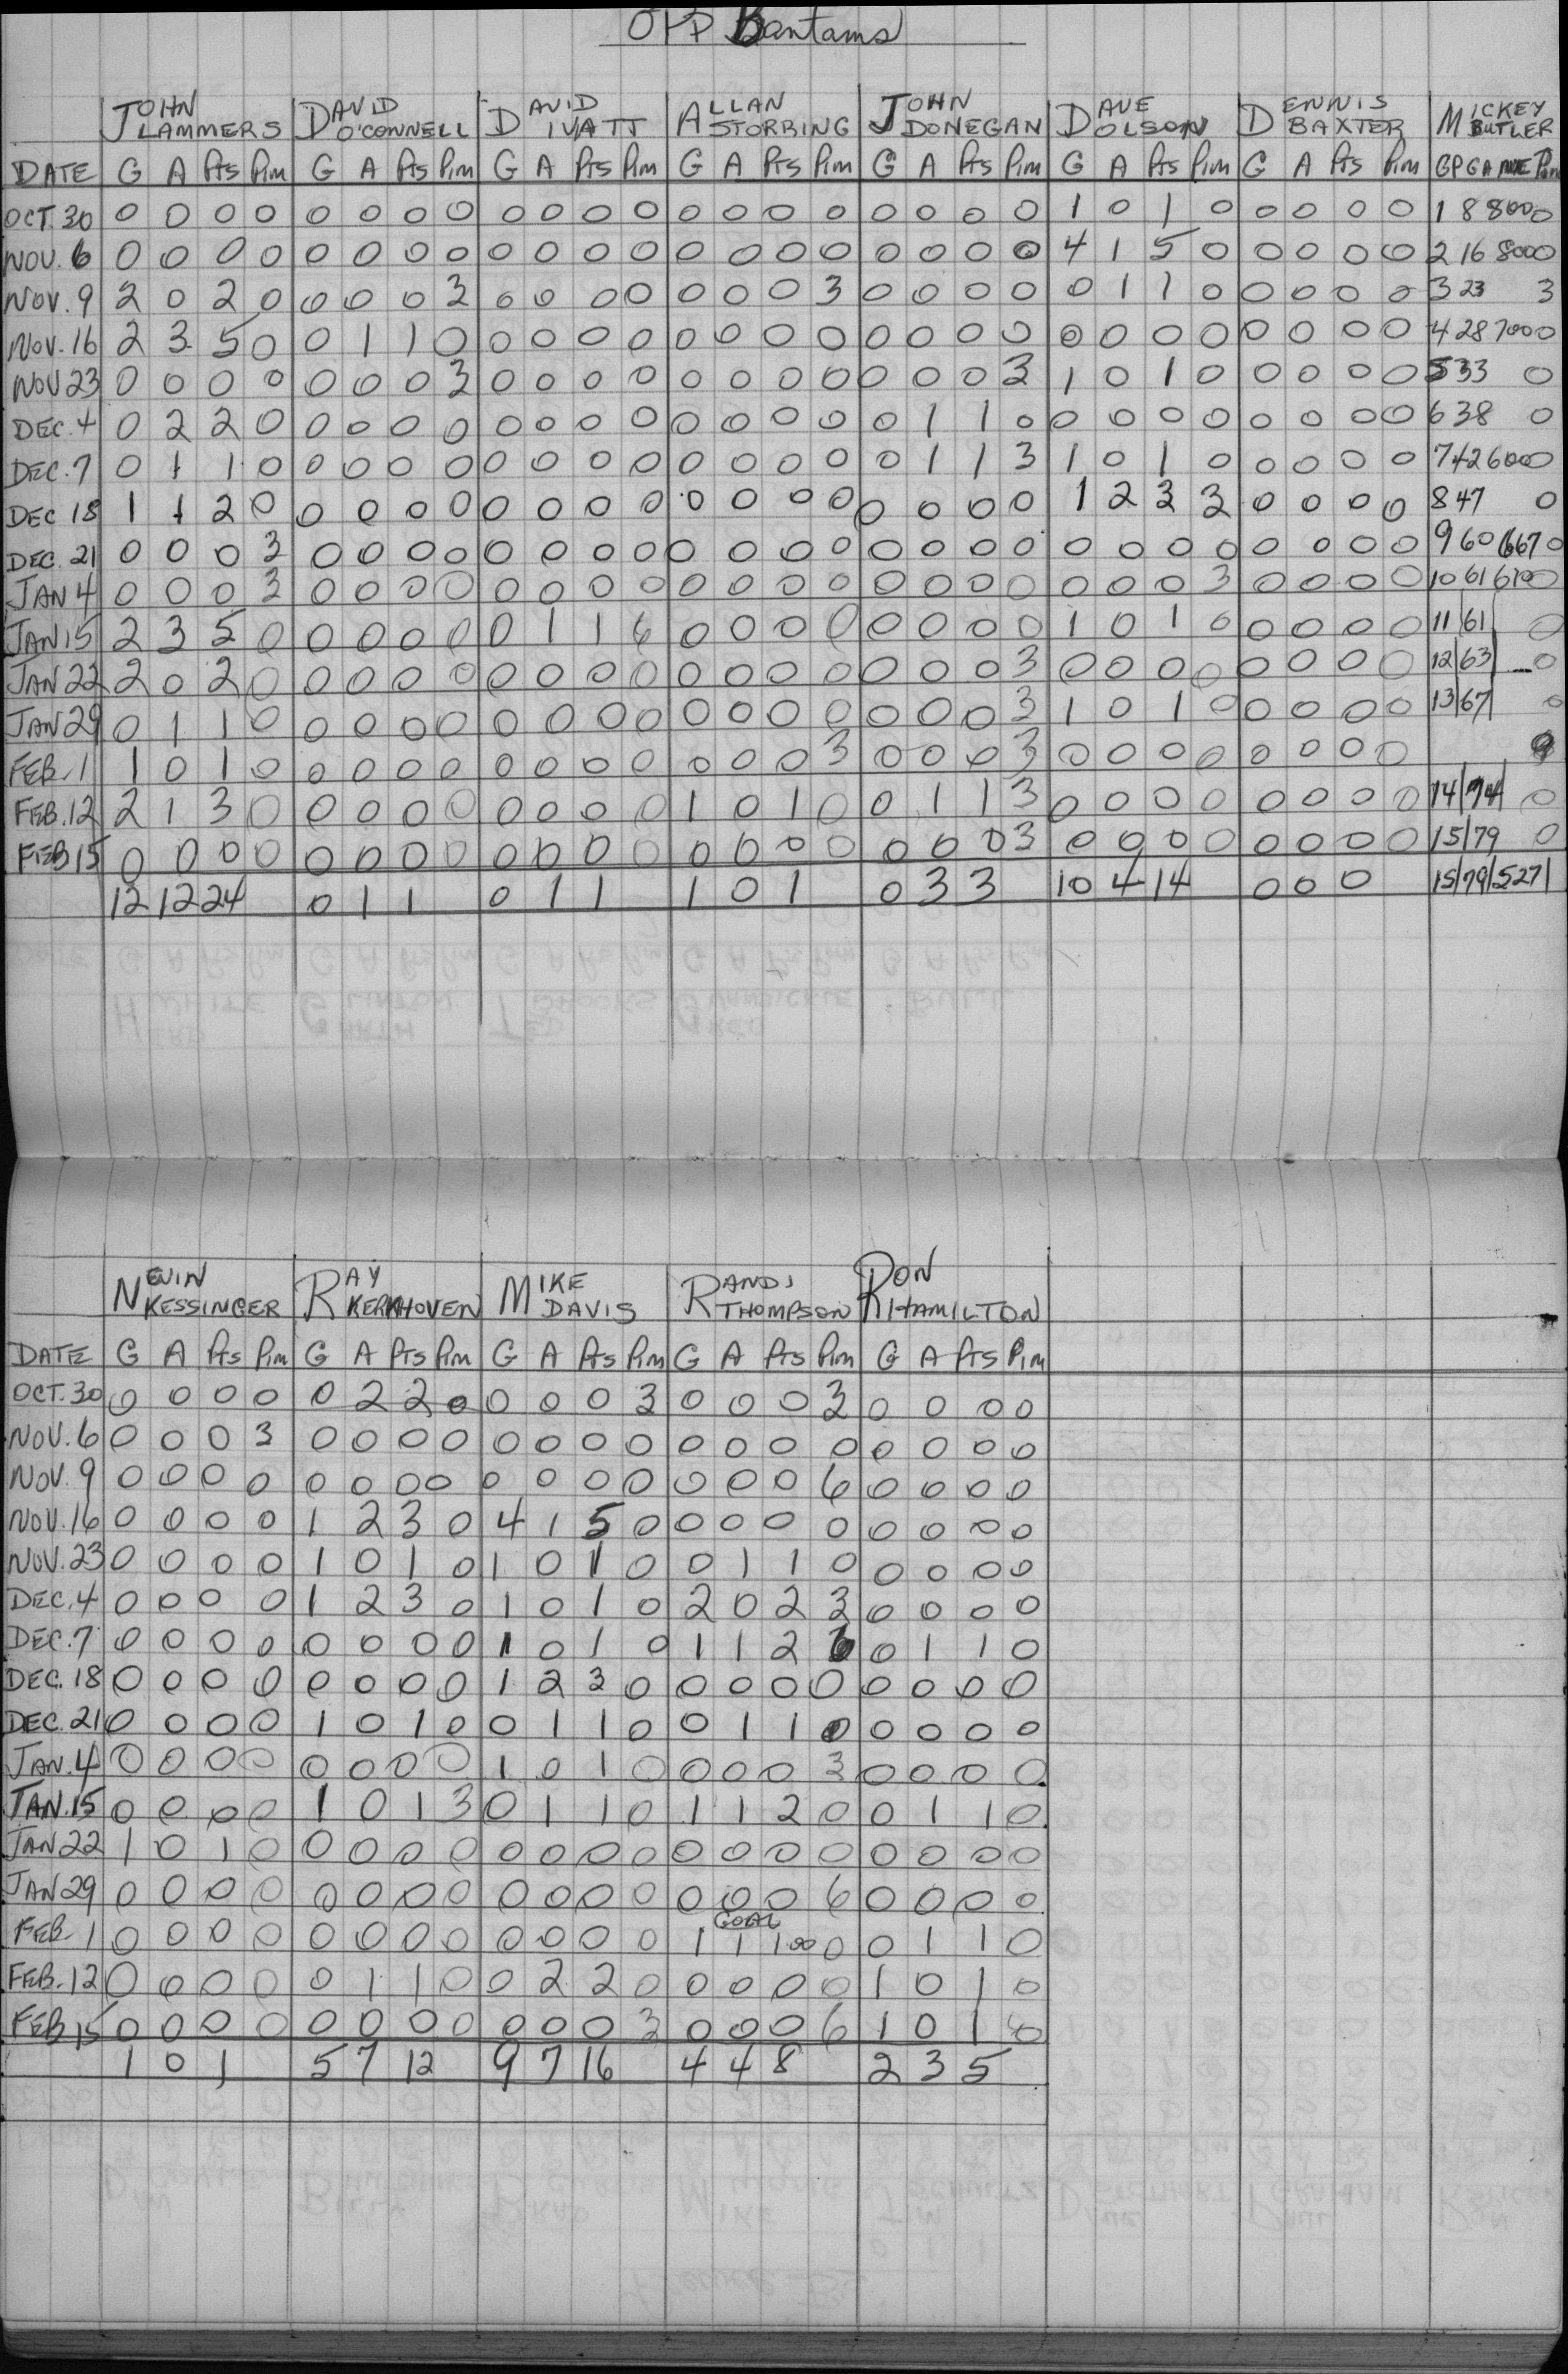 OPP Bantams
JOHN LAMMERS DAVID O'CONNELL DAVID IVATT ALLAN STORRING JOHN DONEGAN DAVE OLSON DENNIS BAXTER MICKEY BUTLER
DATE G A Pts Pim G A Pts Pim G A Pts Pim G A Pts Pim G A Pts Pim G A Pts Pim G A Pts Pim GP GA AVE Pim
OCT. 30 0 0 0 0 0 0 0 0 0 0 0 0 0 0 0 0 0 0 0 0 1 0 1 0 0 0 0 0 1 8 8000
NOV. 6 0 0 0 0 0 0 0 0 0 0 0 0 0 0 0 0 0 0 0 0 4 1 5 0 0 0 0 0 2 16 8000
NOV. 9 2 0 2 0 0 0 0 3 0 0 0 0 0 0 0 3 0 0 0 0 0 1 1 0 0 0 0 0 3 23 3
NOV. 16 2 3 5 0 0 1 1 0 0 0 0 0 0 0 0 0 0 0 0 0 0 0 0 0 0 0 0 0 4 28 7000
NOV 23 0 0 0 0 0 0 0 3 0 0 0 0 0 0 0 0 0 0 0 3 1 0 1 0 0 0 0 0 5 33 0
DEC. 4 0 2 2 0 0 0 0 0 0 0 0 0 0 0 0 0 0 1 1 0 0 0 0 0 0 0 0 0 6 38 0
DEC. 7 0 1 1 0 0 0 0 0 0 0 0 0 0 0 0 0 0 1 1 3 1 0 1 0 0 0 0 0 7 42 6000
DEC 18 1 1 2 0 0 0 0 0 0 0 0 0 0 0 0 0 0 0 0 0 1 2 3 3 0 0 0 0 8 47 0
DEC. 21 0 0 0 3 0 0 0 0 0 0 0 0 0 0 0 0 0 0 0 0 0 0 0 0 0 0 0 0 9 60 667 0
JAN 4 0 0 0 3 0 0 0 0 0 0 0 0 0 0 0 0 0 0 0 0 0 0 0 3 0 0 0 0 10 61 6100
JAN 15 2 3 5 0 0 0 0 0 0 1 1 6 0 0 0 0 0 0 0 0 1 0 1 0 0 0 0 0 11 61 0
JAN 22 2 0 2 0 0 0 0 0 0 0 0 0 0 0 0 0 0 0 0 3 0 0 0 0 0 0 0 0 12 63 0
JAN 29 0 1 1 0 0 0 0 0 0 0 0 0 0 0 0 0 0 0 0 3 1 0 1 0 0 0 0 0 13 67 0
FEB. 1 1 0 1 0 0 0 0 0 0 0 0 0 0 0 0 3 0 0 0 3 0 0 0 0 0 0 0 0
FEB. 12 2 1 3 0 0 0 0 0 0 0 0 0 1 0 1 0 0 1 1 3 0 0 0 0 0 0 0 0 14 74 0
FEB 15 0 0 0 0 0 0 0 0 0 0 0 0 0 0 0 0 0 0 0 3 0 0 0 0 0 0 0 0 15 79 0
12 12 24 0 1 1 0 1 1 1 0 1 0 3 3 10 4 14 0 0 0 15 79 527
NEVIN KESSINGER RAY KERKHOVEN MIKE DAVIS RANDI THOMPSON RON HAMILTON
DATE G A Pts Pim G A Pts Pim G A Pts Pim G A Pts Pim G A Pts Pim
OCT. 30 0 0 0 0 0 2 2 0 0 0 0 3 0 0 0 3 0 0 0 0
NOV. 6 0 0 0 3 0 0 0 0 0 0 0 0 0 0 0 0 0 0 0 0
NOV. 9 0 0 0 0 0 0 0 0 0 0 0 0 0 0 0 6 0 0 0 0
NOV. 16 0 0 0 0 1 2 3 0 4 1 5 0 0 0 0 0 0 0 0 0
NOV. 23 0 0 0 0 1 0 1 0 1 0 1 0 0 1 1 0 0 0 0 0
DEC. 4 0 0 0 0 1 2 3 0 1 0 1 0 2 0 2 3 0 0 0 0
DEC. 7 0 0 0 0 0 0 0 0 1 0 1 0 1 1 2 6 0 1 1 0
DEC. 18 0 0 0 0 0 0 0 0 1 2 3 0 0 0 0 0 0 0 0 0
DEC. 21 0 0 0 0 1 0 1 0 0 1 1 0 0 1 1 0 0 0 0 0
JAN. 4 0 0 0 0 0 0 0 0 1 0 1 0 0 0 0 3 0 0 0 0
JAN. 15 0 0 0 0 1 0 1 3 0 1 1 0 1 1 2 0 0 1 1 0
JAN 22 1 0 1 0 0 0 0 0 0 0 0 0 0 0 0 0 0 0 0 0
JAN 29 0 0 0 0 0 0 0 0 0 0 0 0 0 0 0 6 0 0 0 0
GOAL
FEB. 1 0 0 0 0 0 0 0 0 0 0 0 0 1 1 1.00 0 0 1 1 0
FEB. 12 0 0 0 0 0 1 1 0 0 2 2 0 0 0 0 0 1 0 1 0
FEB 15 0 0 0 0 0 0 0 0 0 0 0 3 0 0 0 6 1 0 1
1 0 1 5 7 12 9 7 16 4 4 8 2 3 5